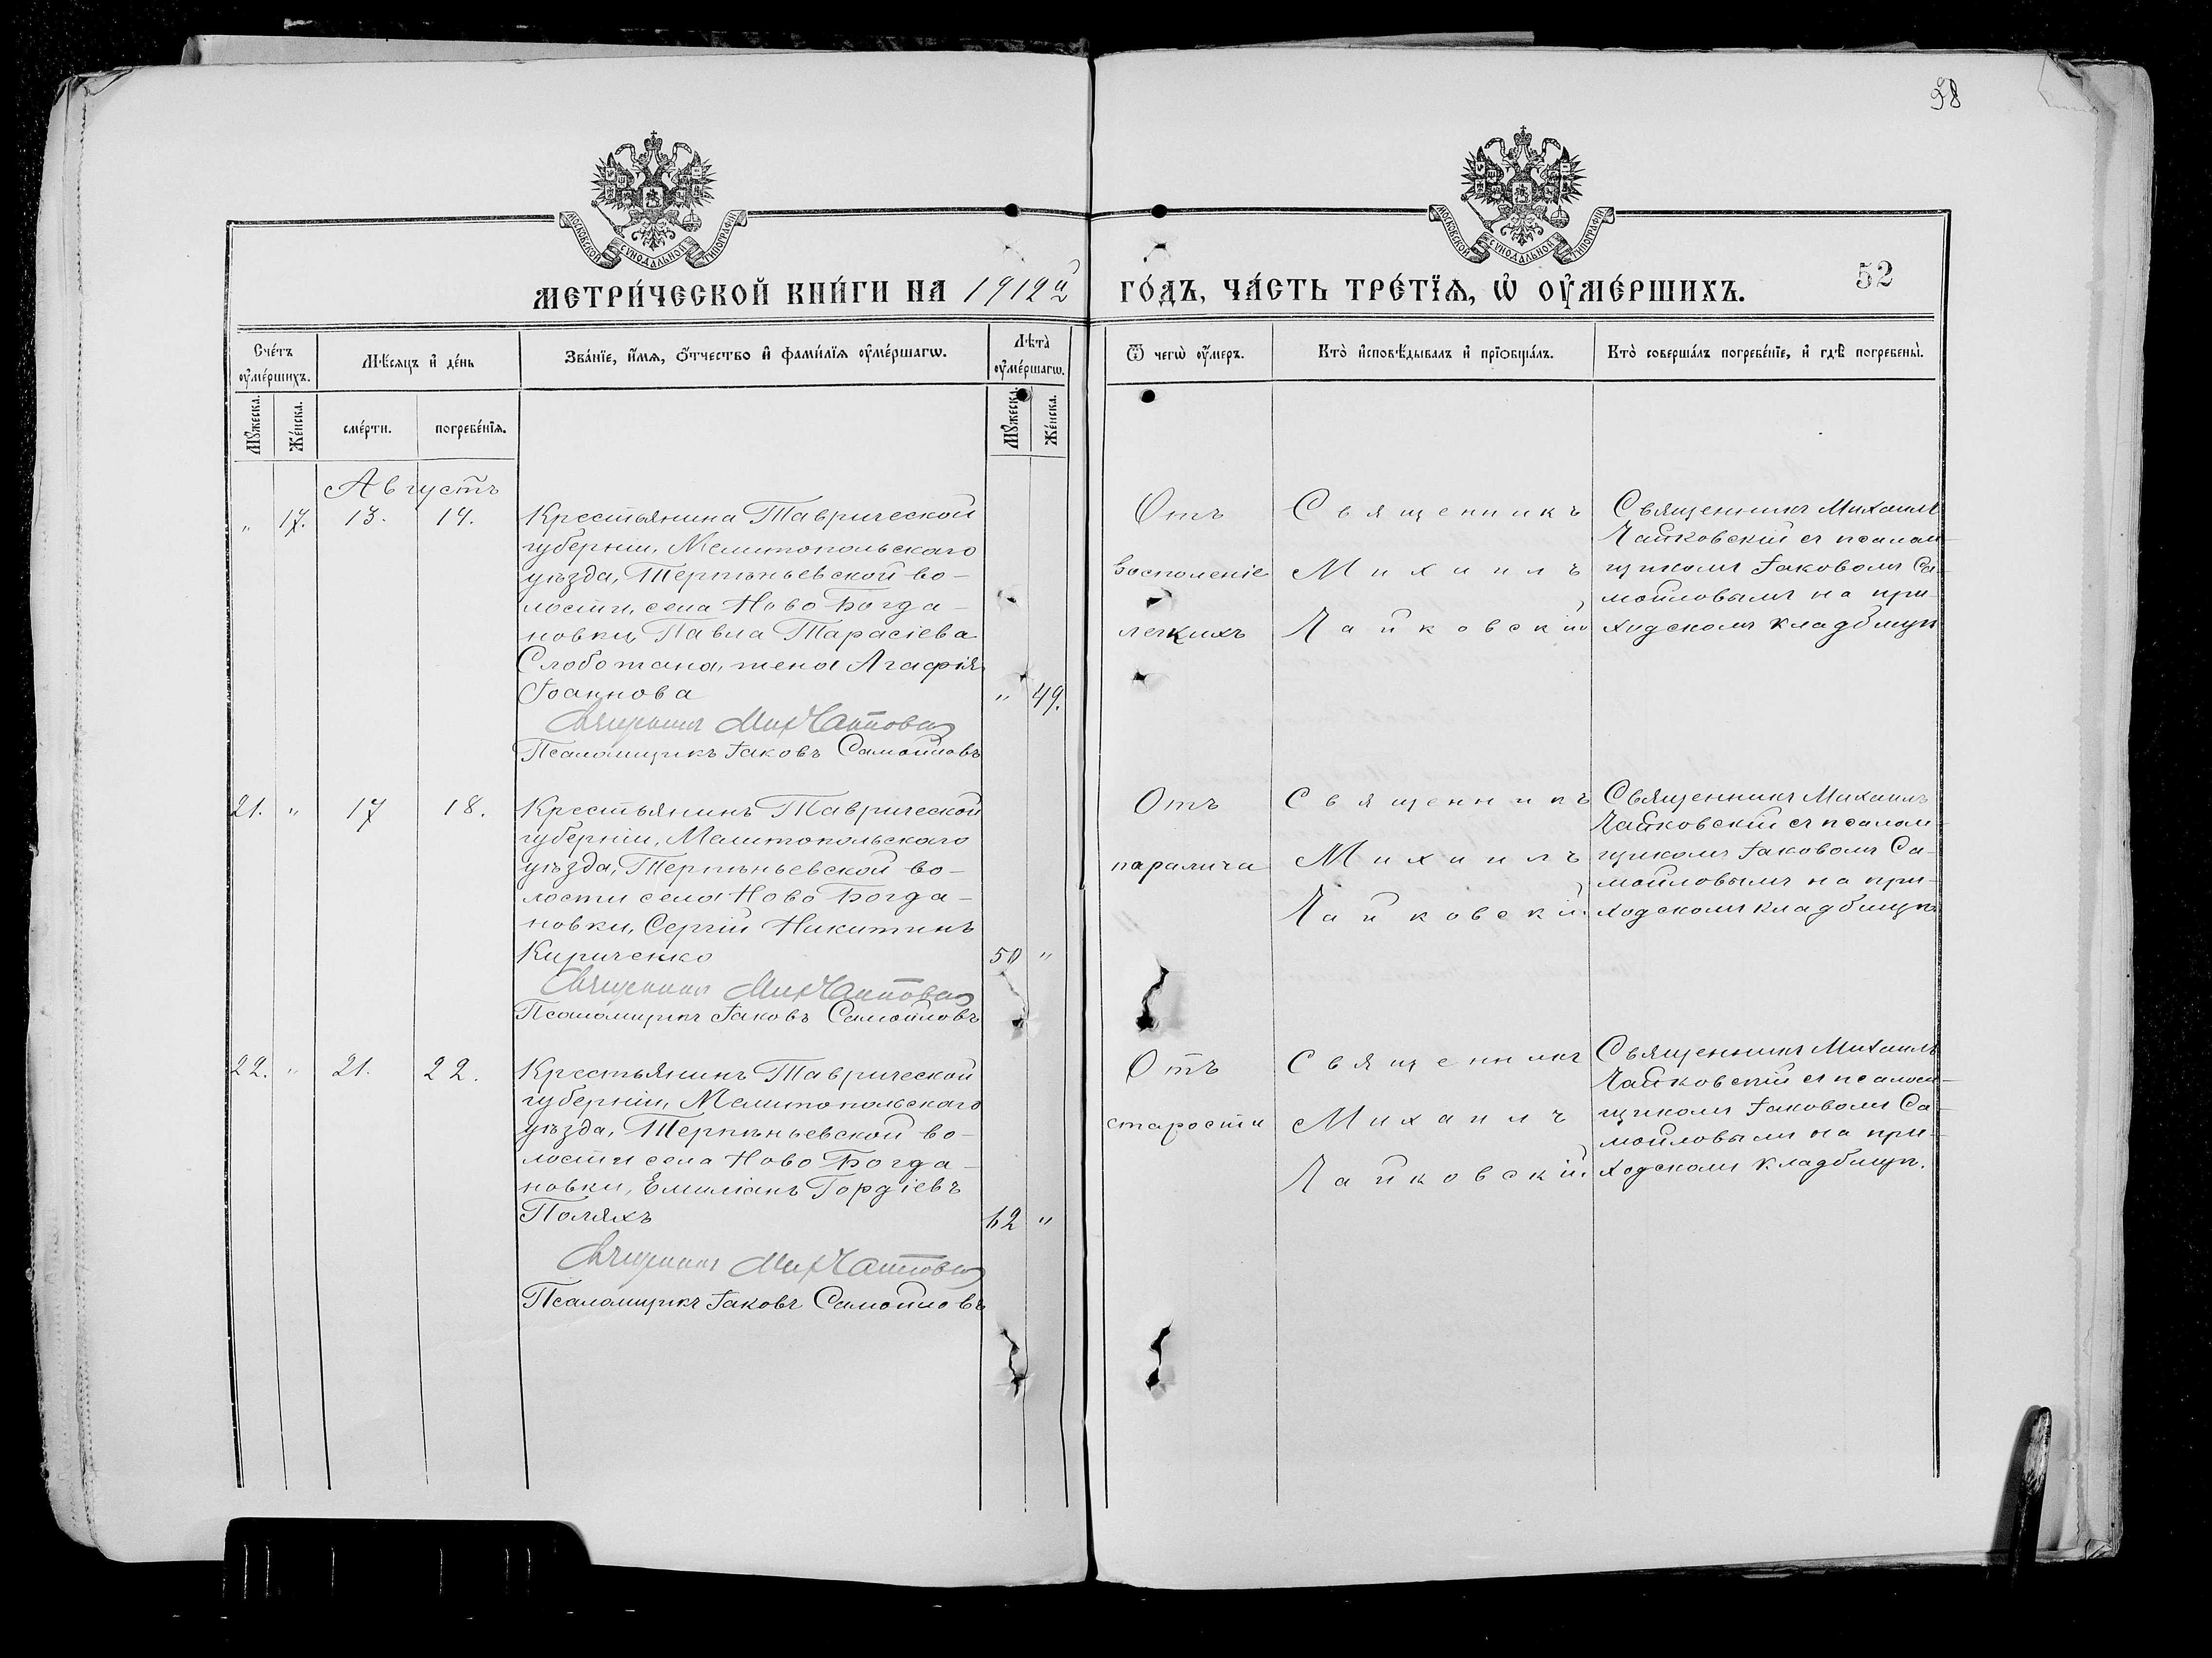 98
МОСКОВСКОЙ СѴНОДАЛЬНОЙ ТИПОГРАФІИ
МОСКОВСКОЙ СѴНОДАЛЬНОЙ ТИПОГРАФІИ
МЕТРИ́ЧЕСКОЙ КНИ́ГИ НА 1912й ГО́ДЪ, ЧА́СТЬ ТРЕ́ТЇѦ, Ѡ҆ ОУ҆МЕ́РШИХЪ.
52
Сче́тъ оу҆ме́ршихъ.
Мѣ́сяцъ и҆ де́нь
Зва́нїе, и҆́мѧ, ѻ҆́тчество и҆ фами́лїѧ оу҆ме́ршагѡ.
Лѣта̀ оу҆ме́ршагѡ.
Ѿ чегѡ̀ оу҆́меръ.
Кто̀ и҆сповѣ́дывалъ и҆ прїѡбща́лъ.
Кто̀ соверша́лъ погребе́нїе, и҆ гдѣ̀ погребены̀.
Мꙋ́жеска.
Же́нска.
сме́рти.
погребе́нїѧ.
Мꙋ́жеска.
Же́нска.
Августъ
" 17. 13. 14.
Крестьянина Таврической
губерніи, Мелитопольскаго
уѣзда, Терпѣньевской во-
лости, села Ново Богда-
новки, Павла Тарасіева
Слобожана, жена Агафія
Іоаннова " 49.
Священникъ Мих Чайковскій
Псаломщикъ Іаковъ Самойловъ
Отъ
восполеніе
легкихъ
Священникъ
Михаилъ
Чайковскій
Священникъ Михаилъ
Чайковскій съ псалом-
щикомъ Іаковомъ Са-
мойловымъ на при-
ходскомъ кладбищѣ
21. " 17 18.
Крестьянинъ Таврической
губерніи, Мелитопольскаго
уѣзда, Терпѣньевской во-
лости села Ново Богда-
новки, Сергій Никитинъ
Кириченко 50 "
Священникъ Мих Чайковскій
Псаломщикъ Іаковъ Самойловъ
Отъ
паралича
Священникъ
Михаилъ
Чайковскій
Священникъ Михаилъ
Чайковскій съ псалом-
щикомъ Іаковомъ Са-
мойловымъ на при-
ходскомъ кладбищѣ
22. " 21. 22.
Крестьянинъ Таврической
губерніи, Мелитопольскаго
уѣзда, Терпѣньевской во-
лости села Ново Богда-
новки, Емиліанъ Гордіевъ
Поляхъ 62 "
Священникъ Мих Чайковскій
Псаломщикъ Іаковъ Самойловъ
Отъ
старости
Священникъ
Михаилъ
Чайковскій
Священникъ Михаилъ
Чайковскій съ псалом-
щикомъ Іаковомъ Са-
мойловымъ на при-
ходскомъ кладбищѣ.